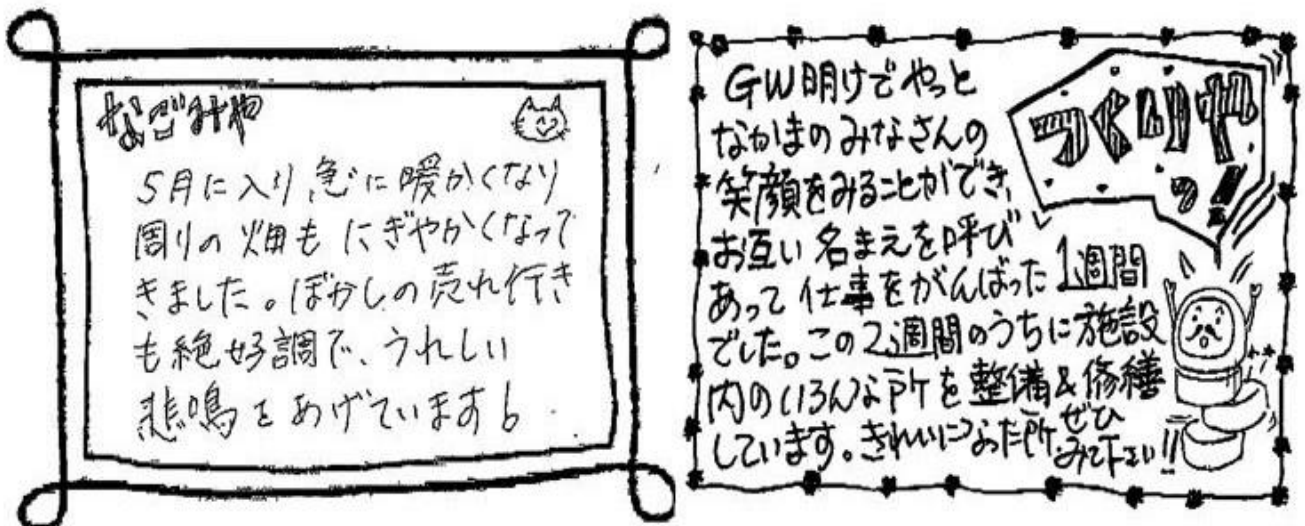 なごみや
5月に入り急に暖かくなり
周りの畑もにぎやかくなって
きました。ぼかしの売れ行き
も絶好調で、うれしい
悲鳴をあげています♭
つくりや
っ!
GW明けでやっと
なかまのみなさんの
笑顔をみることができ、
お互い名まえを呼び
あって仕事をがんばった1週間
でした。この2週間のうちに施設
内のいろんな所を整備&修繕
しています。きれいになった所ぜひ
みて下さい!!